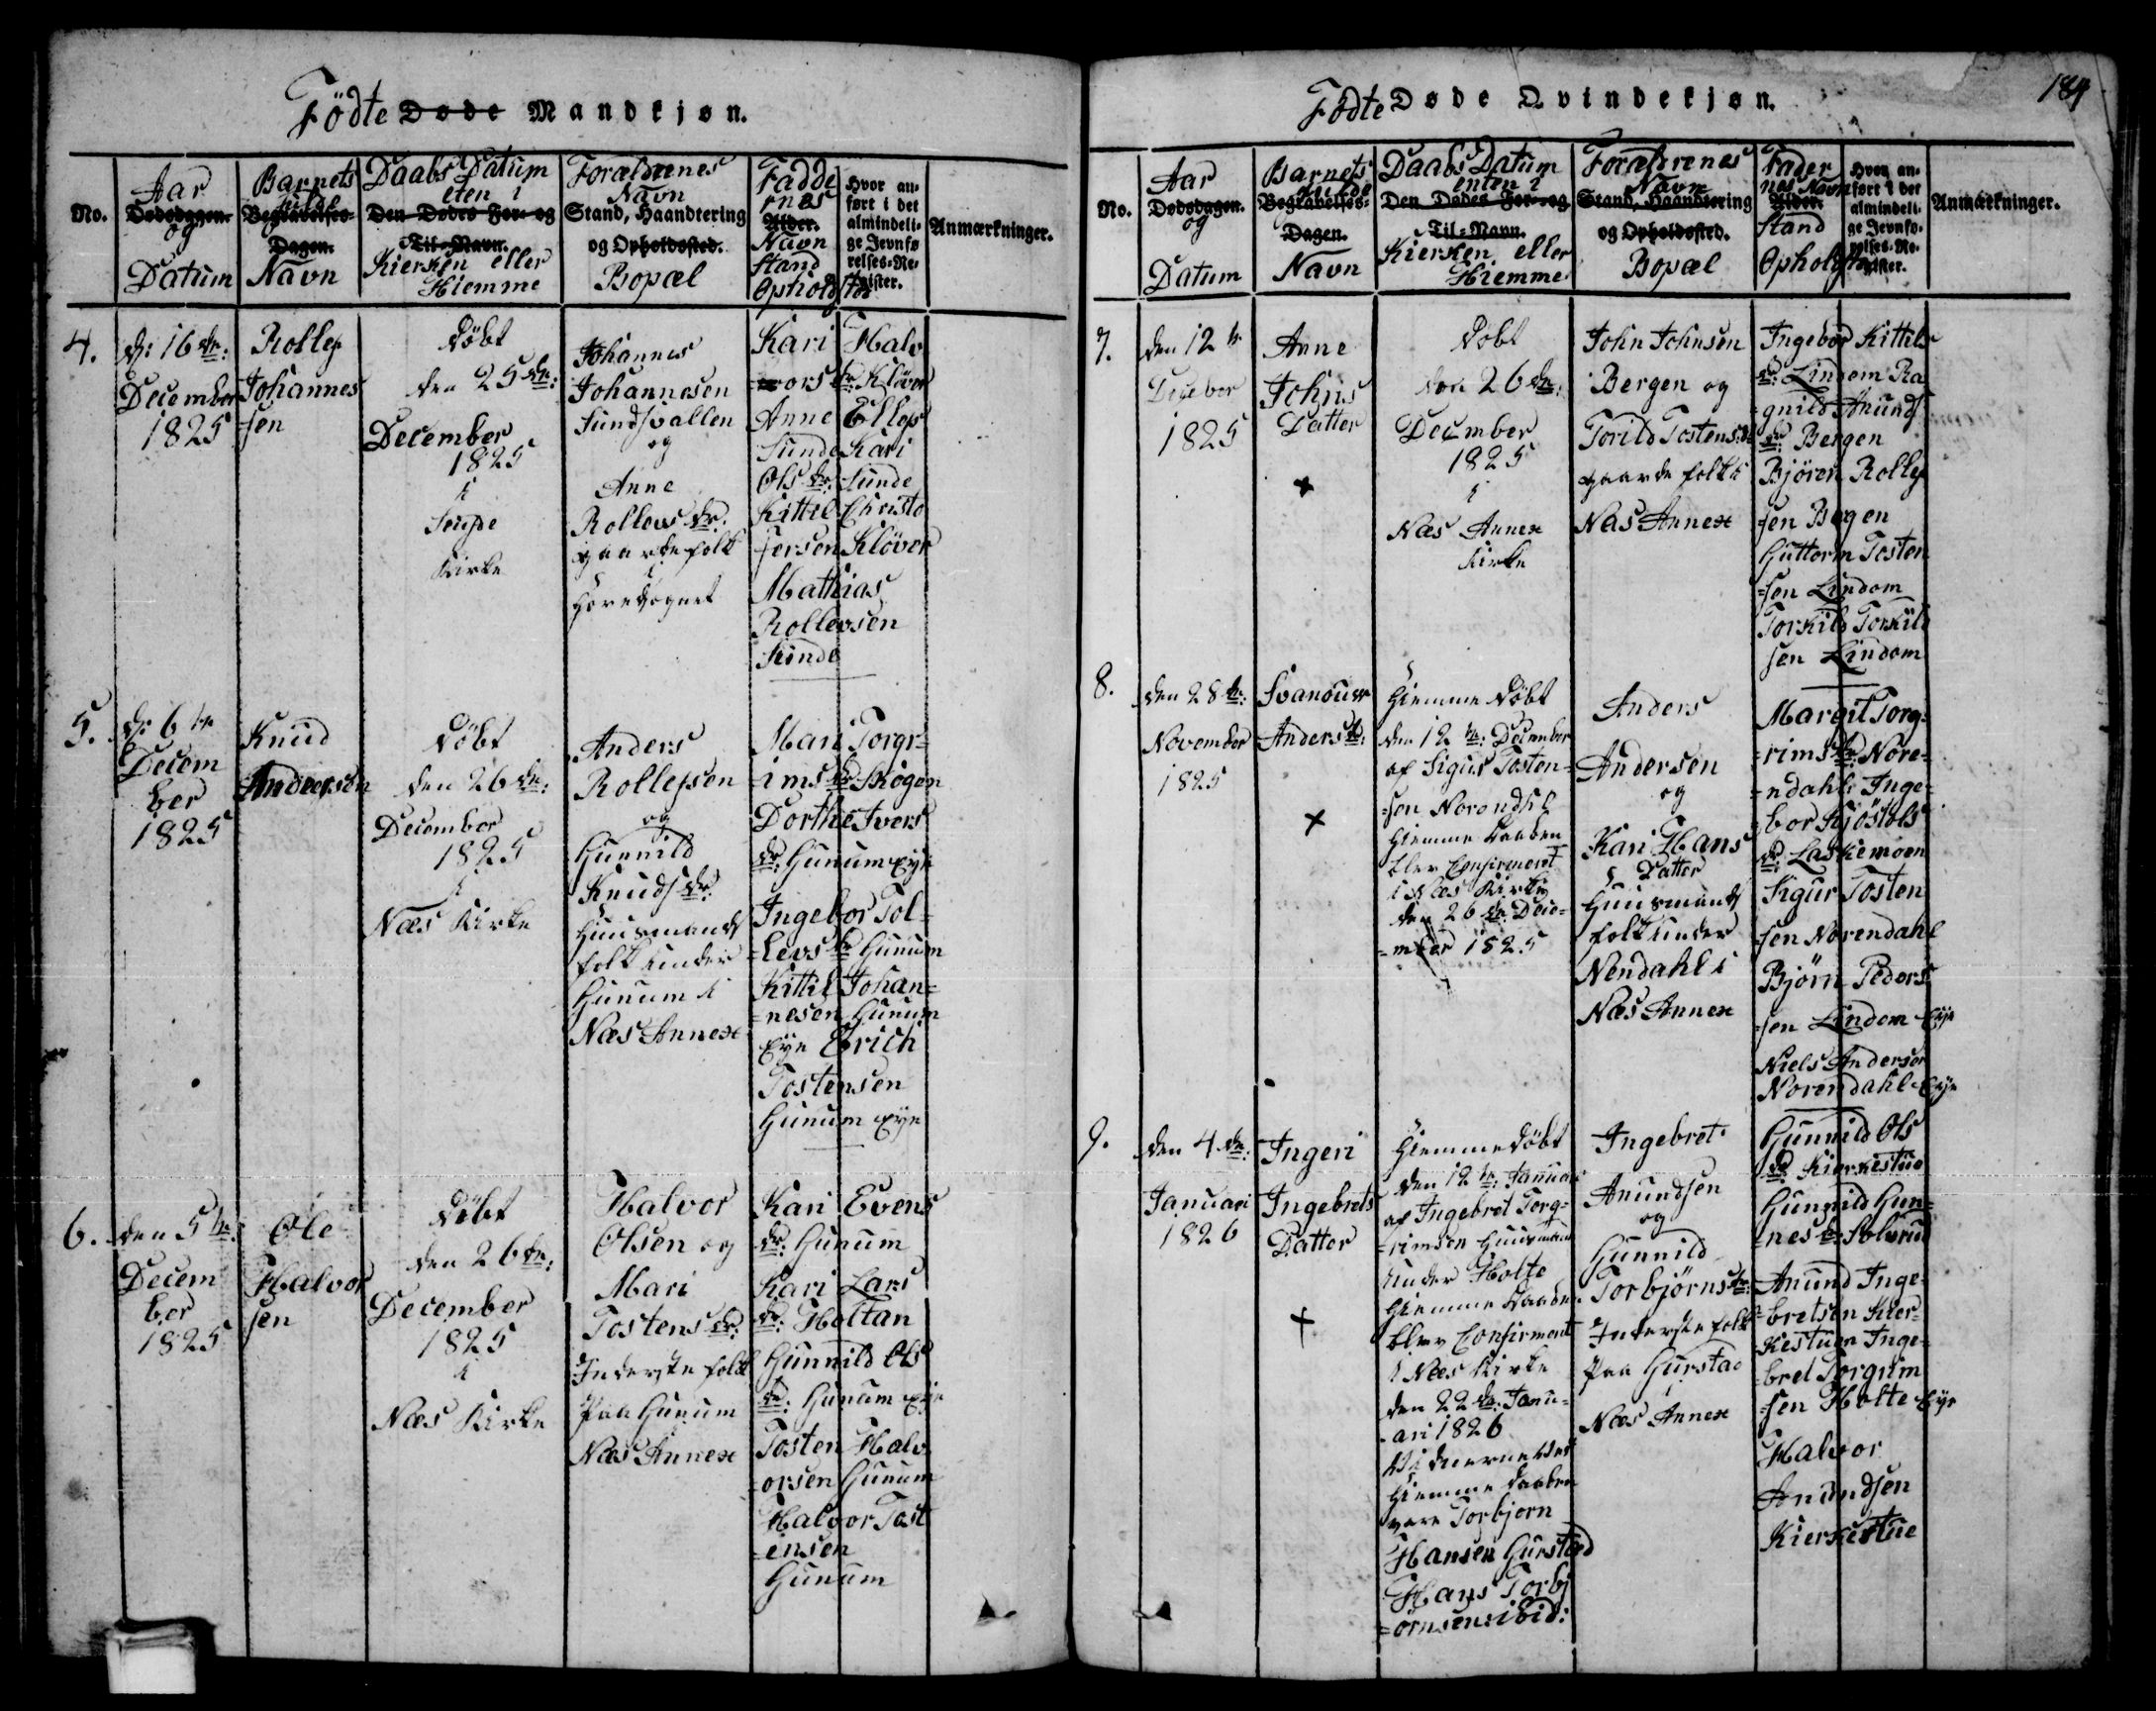 Födte Døde Mandkjøn.
No.
Aar
Dødsdagen.
og
Datum
Barnets
fulde
Begravelses-
Dagen.
Navn
Daabs Datum
eten i
Den Dødes For- og
Til-Navn.
Kierken eller
Hiemme
Forældrenes
Navn
Stand, Haandtering
og Opholdssted.
Bopæl
Fadde
rnes
Alder.
Navn
Stand
Ophold
Hvor an-
ført i det
almindeli-
ge Jevnfø
relses-Re-
gister.
Anmærkninger.
4.
d: 16de:
December
1825
Rollef
Johannes
sen
Døbt
den 25de:
December
1825
i
Kirke
Johannes
Johannesen
Sundsvallen
og
Anne
Rollevs dr.
gaardefolk
i
Hovedsognet
Kari Halv
vors dr Kløver
Anne Ellefs
Sunde Kari
Ols dr: Sunde
Kittel Christo
fersen Kløver
Mathias
Rollevsen
Sunde
5.
d: 6te
Decem
ber
1825
Knud
Andersen
Døbt
den 26de:
December
1825
i
Næs Kirke
Anders
Rollefsen
og
Gunnild
Knuds dr.
Huusmands
folk under
Gunum i
Næs Annex
Mari Torgr=
=ims dr Skogen
Dorthe Ivers
dr: Gunum Eye
Ingebor Tol=
=levs dr Gunum
Kittil Johan=
=nesen Gunum
Eye Erich
Tostensen
Gunum Eye
6.
den 5te:
Decem
ber
1825
Ole
Halvor
sen
Døbt
den 26de:
December
1825
i
Næs Kirke
Halvor
Olsen og
Mari
Tostens dr:
Inderste folk
paa Gunum
Næs Annex
Kari Evens
dr: Gunum
Kari Lars
dr: Holtan
Gunnild Ols
dr: Gunum Eye
Tosten Halv
=orsen Gunum
Halvor Tost
=ensen
Gunum
189
Födte Døde Qvindekjøn.
No.
Aar
Dødsdagen.
og
Datum
Barnets
fulde
Begravelses-
Dagen.
Navn
Daabs Datum
enten i
Den Dødes For- og
Til-Navn.
Kierken eller
Hiemme
Forældrenes
Navn
Stand, Haandtering
og Opholdssted.
Bopæl
Fader
nes Navn
Alder.
Stand
Ophold
Hvor an-
ført i det
almindeli-
ge Jevnfø-
relses-Re-
gister.
Anmærkninger.
7.
den 12te
Deceber
1825
Anne
Johns
Datter
+
Døbt
den 26de:
December
1825
i
Næs Annex
Kirke
John Johnsen
Bergen og
Torild Tostens: dr
gaarde folk i
Næs Annex
Ingebor Kittils
dr: Lindem Ra
gnild Anunds
dr: Bergen
Björen Rollef
sen Bergen
Guttorm Tosten
=sen Lindom
Torkild Torkild
sen Lindom
8.
den 28de:
November
1825
Svanoug
Anders dr:
+
Hiemme Døbt
den 12te: December
af Sigur Tosten=
=sen Norendahl
Hiemme Daaben
blev Confirmeret
i Næs Kirke
den 26de Dece=
=mber 1825
Anders
Andersen
og
Kari Hans
Datter
Huusmands
folk under
Nendahl i
Næs Annex
Margit Torg=
=rims dr: Nore=
=ndahl: Inge=
=bor Kjöstols
dr: Laskemoen
Sigur Tosten
sen Norendahl
Bjørn Peders
=sen Lindem Eye
Niels Andersen
Norendahl Eye
9.
den 4de:
Januari
1826
Ingeri
Ingebrets
Datter
+
Hiemmedøbt
den 12te: Januar
af Ingebret Torg=
=rimsen Huusmand
under Holte
Hiemme Daaben
blev Confirmert
i Næs Kirke
den 22de: Janu=
=ari 1826
Vidnerne ved
Hiemme Daaben
vare Torbjorn
Hansen Gurstad
Hans Torbj
=örnsen: ibid:
Ingebret
Anundsen
og
Gunnild
Torbjørns dr:
Inderste folk
paa Gurstad
i
Næs Annex
Gunnild Ols
dr Kierkestue
Gunnild Gun=
=nes dr: Solvrud
Anund Inge=
=bretsen Kier=
Kestuen Inge=
=bret Torgrim
=sen Holte Eye
Halvor
Anundsen
Kierkestue